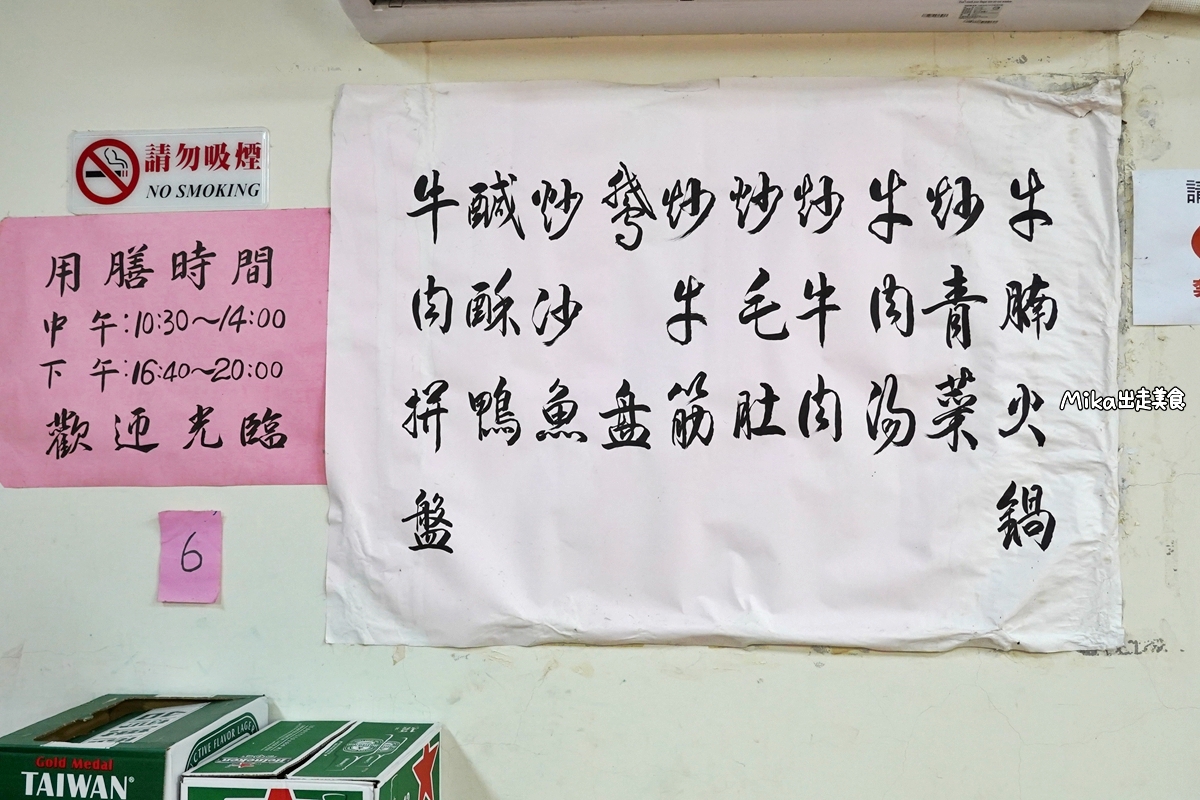 請勿吸煙
NO SMOKING
用膳時間
中午:10:30~14:00
下午:16:40~20:00
歡迎光臨
6
牛腩火鍋
炒青菜
牛肉湯
炒牛肉
炒毛肚
炒牛筋
鵝盘
炒沙魚
鹹酥鴨
牛肉拼盤
Mika出走美食
請
Gold Medal
TAIWAN
TIVE FLAVOR LAGE
Heineken